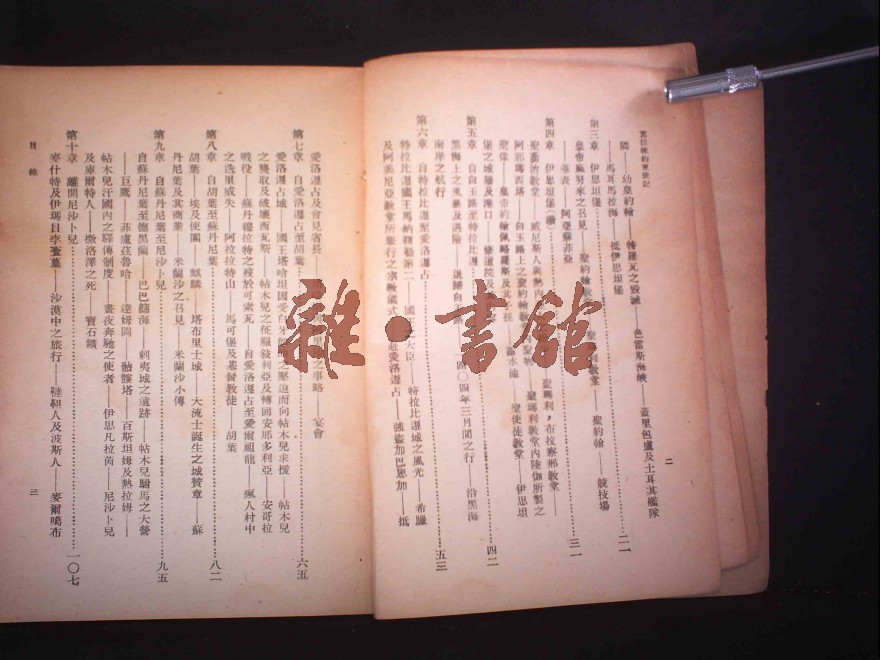 克拉維約東使記
二
隣——幼皇約翰——特羅瓦之毀滅——色雷斯海峽——蓋里包盧及土耳其艦隊
——馬耳馬拉海——抵伊思坦堡
第三章 伊思坦堡……二一
皇帝馬努來之召見——聖約翰教堂——聖瑪利教堂——聖約翰——競技場
——華表——阿亞蘇菲亞
第四章 伊思坦堡(續)……三一
聖喬治教堂——威尼斯人與熱內——聖瑪利·布拉察那教堂——
阿那瑪西塔——白玉路上之聖約翰教堂——聖瑪利教堂內陸伽所製之
聖像——皇帝約翰佩路羅斯及其——蓄水池——聖使徒教堂——伊思坦
堡之城垣及海口——修道院及
第五章 自白玉路至特拉比遜……四二
黑海上之風暴及遇險——退歸白玉路——一四〇四年三月間之行——沿黑海
南岸之航行
第六章 自特拉比遜至愛洛遜占……五三
特拉比遜國王馬納額勒第二——國 大臣——特拉比遜城之風光——希臘
及阿美尼亞教堂所舉行之宗教儀式——赴愛洛遜占——強盜加巴思加——抵
愛洛遜占及會見省長——之事略——宴會
第七章 自愛洛遜占至胡葉……六五
愛洛遜占城——國王塔哈坦因受白 之壓迫而向帖木兒求援——帖木兒
之襲取及破壞西瓦斯——帖木兒之征服敘利亞及轉回安那多利亞——安哥拉
戰役——蘇丹穆拉特之歿於可索瓦——自愛洛遜占至愛爾祖龍——瘋人村中
之迭里威失——阿拉拉特山——馬可堡及基督教徒——胡葉
第八章 自胡葉至蘇丹尼葉……八二
胡葉——埃及使團——麒麟——塔布里士城——大流士誕生之城贊章——蘇
丹尼葉及其商業——米蘭沙之召見——米蘭沙小傳
第九章 自蘇丹尼葉至尼沙卜兒……九五
自蘇丹尼葉至德黑蘭——巴巴隨海——剌夷城之遺跡——帖木兒駙馬之大營
——巨鷹——菲盧茲魯哈——達姆岡——骷髏塔——百斯坦姆及熱拉姆——
帖木兒汗國內之驛傳制度——晝夜奔馳之使者——伊思凡拉茵——尼沙卜兒
及庫爾特人——撒洛澤之死——寶石鑛
第十章 離開尼沙卜兒……一〇七
麥什特及伊瑪目李查墓——沙漠中之旅行——韃靼人及波斯人——麥爾噶布
目錄
三
雜·書館